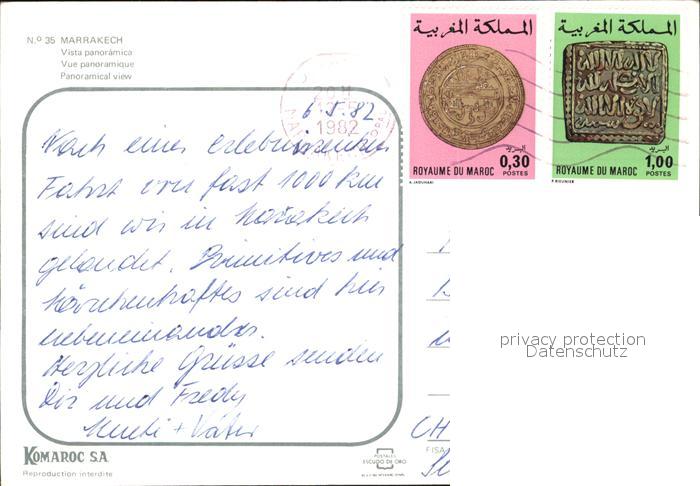 N.º 35 MARRAKECH
Vista panorámica
Vue panoramique
Panoramical view
المملكة المغربية
البريد
0,30
ROYAUME DU MAROC POSTES
المملكة المغربية
البريد
1,00
ROYAUME DU MAROC POSTES
1982
6.5.82
Nach einer erlebnisreichen
Fahrt von fast 1000 Km
sind wir in Marakech
gelandet. Primitives und
Märchenhaftes sind hier
nebeneinander.
Herzliche Grüsse senden
Dir und Fredy
+ Vater
CH
privacy protection
Datenschutz
KOMAROC S.A.
Reproduction interdite
POSTALES
ESCUDO DE ORO
FISA